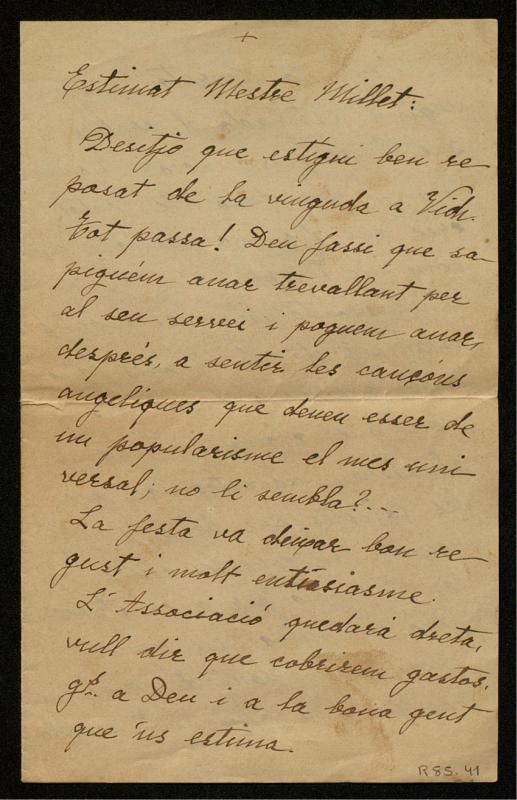 +
Estimat Mestre Millet:
Desitjo que estigui ben re
posat de la vinguda a Vich.
Tot passa! Deu fassi que sa-
piguém anar trevallant per
al seu servei i poguem anar,
després, a sentir les cançóns
angeliques que deuen esser de
un popularisme el mes uni
versal; no li sembla?...
La festa va deixar bon re
gust i molt entusiasme.
L'Associació quedará dreta,
vull dir que cobrirem gastos,
gs. a Deu i a la bona gent
que 'ns estima.
R 8S. 41